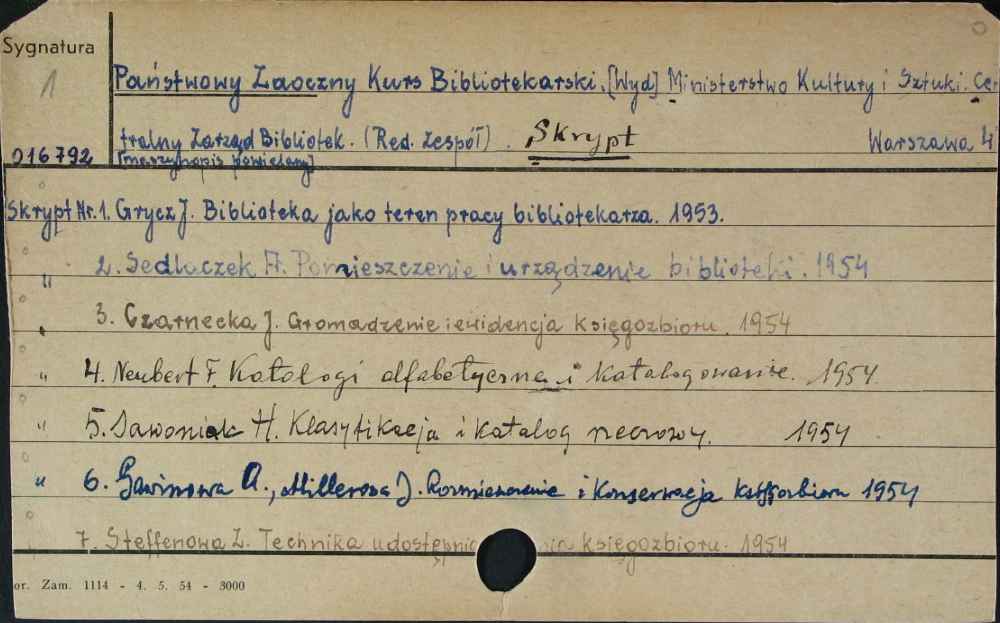 Sygnatura
1
Państwowy Zaoczny Kurs Bibliotekarski. [Wyd] Ministerstwo Kultury i Sztuki. Cen
tralny Zarząd Bibliotek. (Red. Zespół). Skrypt Warszawa
016792 [maszynopis powielany]
Skrypt Nr. 1. Grycz J. Biblioteka jako teren pracy bibliotekarza. 1953.
" 2. Sedlaczek Fr. Pomieszczenie i urządzenie biblioteki. 1954
" 3. Czarnecka J. Gromadzenie i ewidencja księgozbioru. 1954
" 4. Neubert F. Katalogi alfabetyczne i katalogowanie. 1954.
" 5. Sawoniak H. Klasyfikacja i katalog rzeczowy. 1954
" 6. Gawinowa A., Millerowa J. Rozmieszczenie i konserwacja księgozbioru 1954
7. Steffenowa Z. Technika księgozbioru. 1954
or. Zam. 1114 - 4. 5. 54 - 3000